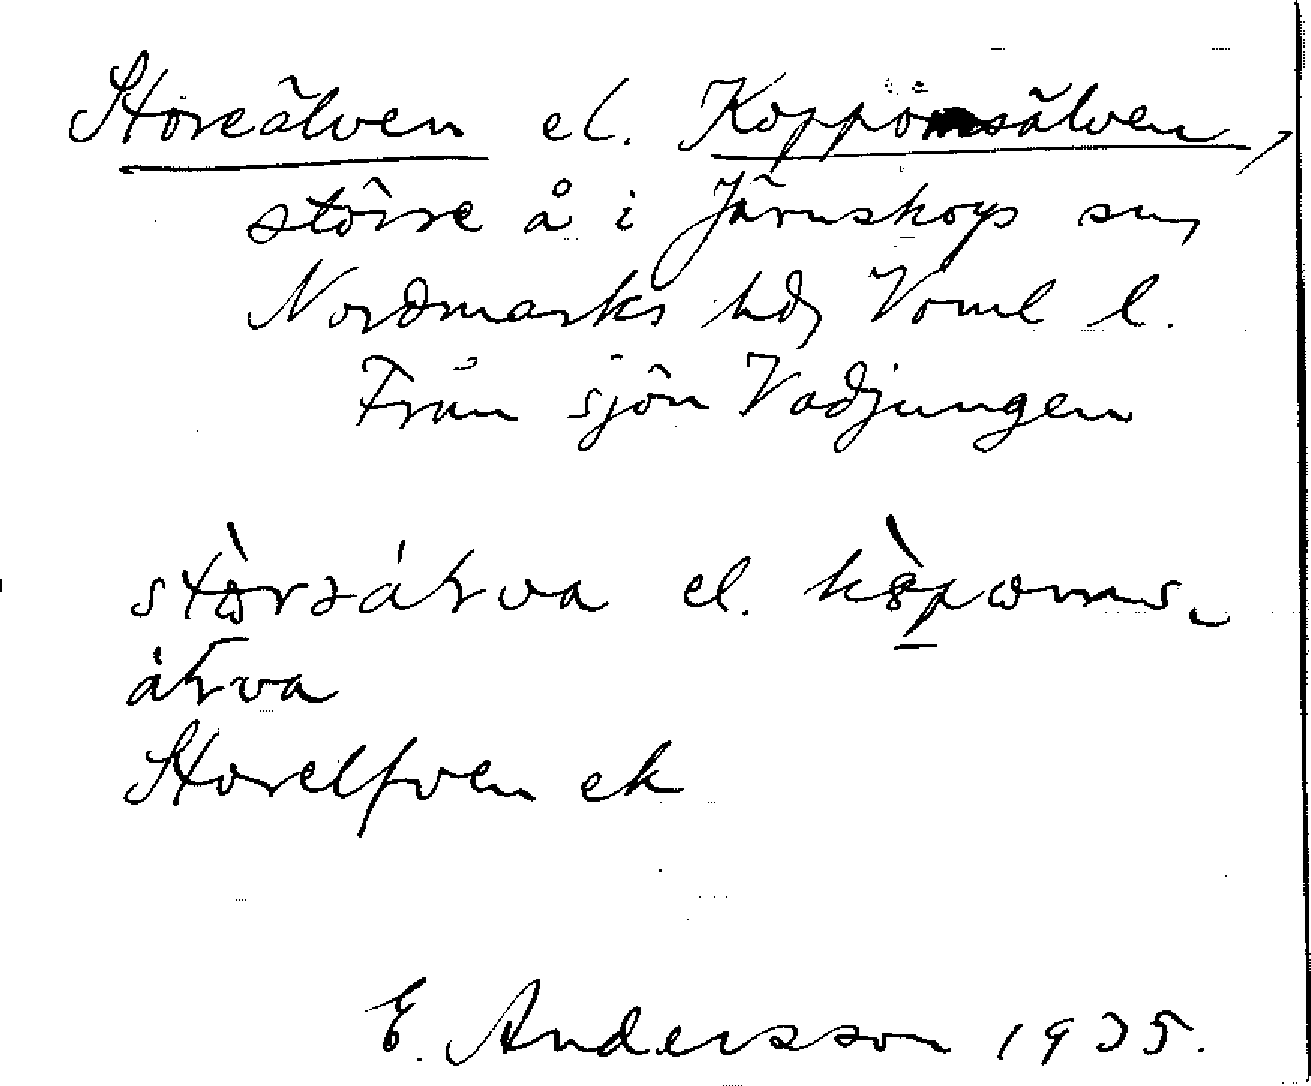 Storeälven el. Koppomsälven,
större å i Järnskogs sn,
Nordmarks hd, Vrml l.
Från sjön Vadjungen
el.
Storelfven ek
E. Andersson 1935.